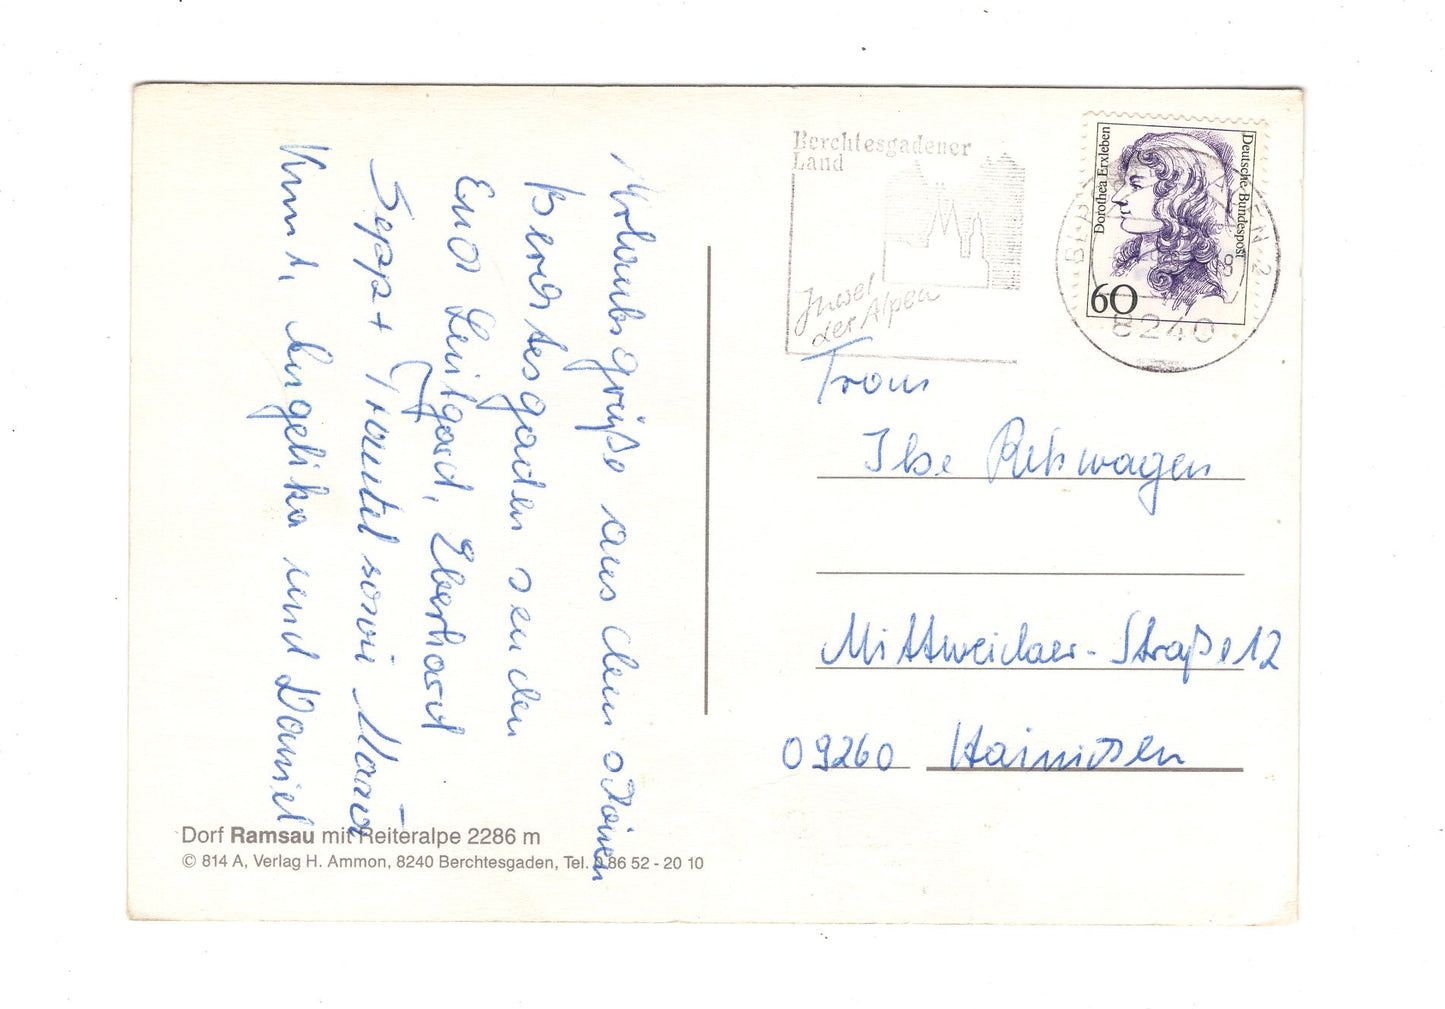 Urlaubsgrüße aus dem schönen
Berchtesgaden senden
Euch Leutgard, Eberhard
Sepp + Trautel sowie Maria
Knut, Angelika und Daniel
Dorf Ramsau mit Reiteralpe 2286 m
© 814 A, Verlag H. Ammon, 8240 Berchtesgaden, Tel. 0 86 52 - 20 10
Berchtesgadener
Land
Insel
der Alpen
Dorothea Erxleben
Deutsche Bundespost
60
8240
Frau
Ilse
Mittweidaer-Straße 12
09260 Hainichen